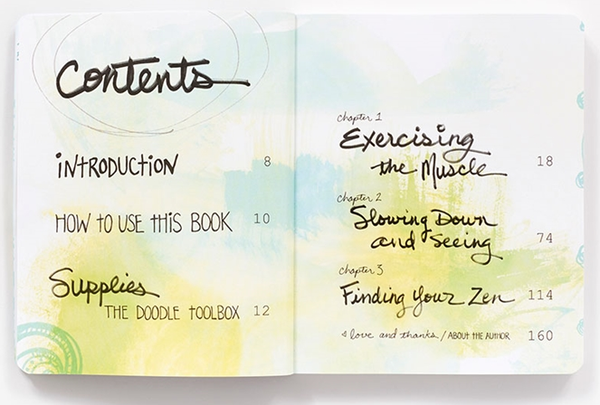 Contents
INTRODUCTION 8
HOW TO USE THIS BOOK 10
Supplies
THE DOODLE TOOLBOX 12
chapter 1
Exercising
the Muscle 18
chapter 2
Slowing Down
and Seeing 74
chapter 3
Finding Your Zen 114
love and thanks / ABOUT THE AUTHOR 160